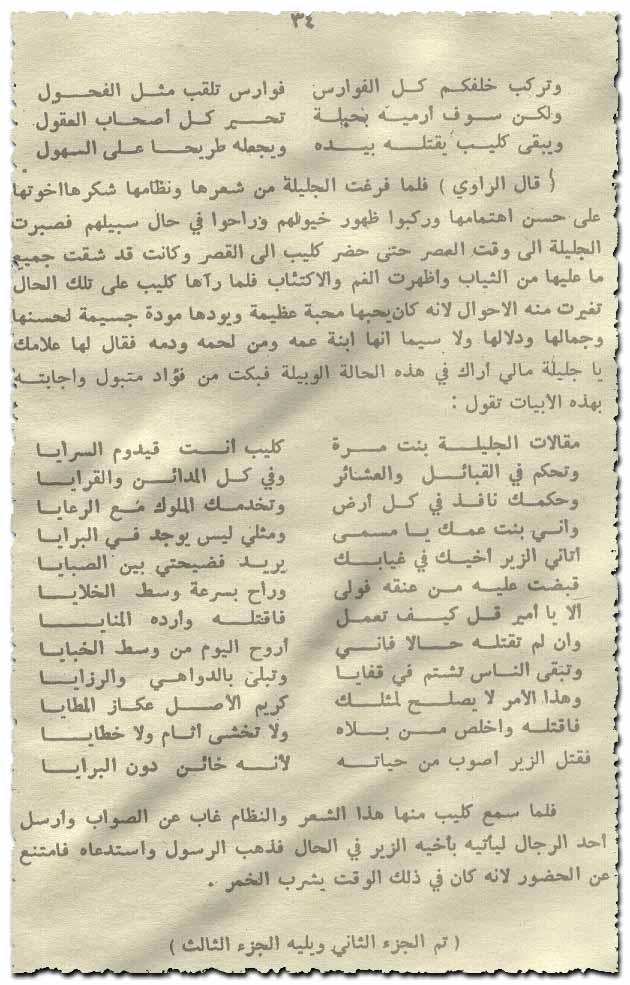 ٣٤
وتركب خلفكم كل الفوارس فوارس تلقب مثل الفحول
ولكن سوف أرميه بحيلة تحير كل أصحاب العقول
ويبقى كليب يقتله بيده ويجعله طريحا على السهول
( قال الراوي ) فلما فرغت الجليلة من شعرها ونظامها شكرها اخوتها
على حسن اهتمامها وركبوا ظهور خيولهم وراحوا في حال سبيلهم فصبرت
الجليلة الى وقت العصر حتى حضر كليب الى القصر وكانت قد شقت جميع
ما عليها من الثياب وأظهرت الغم والاكتئاب فلما رآها كليب على تلك الحال
تغيرت منه الاحوال لانه كان يحبها محبة عظيمة ويودها مودة جسيمة لحسنها
وجمالها ودلالها ولا سيما انها ابنة عمه ومن لحمه ودمه فقال لها علامك
يا جليلة مالي أراك في هذه الحالة الوبيلة فبكت من فؤاد متبول وأجابته
بهذه الأبيات تقول :
مقالات الجليلة بنت مرة كليب أنت قيدوم السرايا
وتحكم في القبائل والعشائر وفي كل المدائن والقرايا
وحكمك نافذ في كل أرض وتخدمك الملوك مع الرعايا
وأني بنت عمك يا مسمى ومثلي ليس يوجد في البرايا
أتاني الزير أخيك في غيابك يريد فضيحتي بين الصبايا
قبضت عليه من عنقه فولى وراح بسرعة وسط الخلايا
ألا يا أمير قل كيف تعمل فاقتله وأرده المنايا
وان لم تقتله حالا فاني أروح اليوم من وسط الخبايا
وتبقى الناس تشتم في قفايا وتبلى بالدواهي والرزايا
وهذا الأمر لا يصلح لمثلك كريم الأصل عكاز المطايا
فاقتله واخلص من بلاه ولا تخشى أثام ولا خطايا
فقتل الزير أصوب من حياته لأنه خائن دون البرايا
فلما سمع كليب منها هذا الشعر والنظام غاب عن الصواب وأرسل
أحد الرجال ليأتيه بأخيه الزير في الحال فذهب الرسول واستدعاه فامتنع
عن الحضور لانه كان في ذلك الوقت يشرب الخمر .
( تم الجزء الثاني ويليه الجزء الثالث )